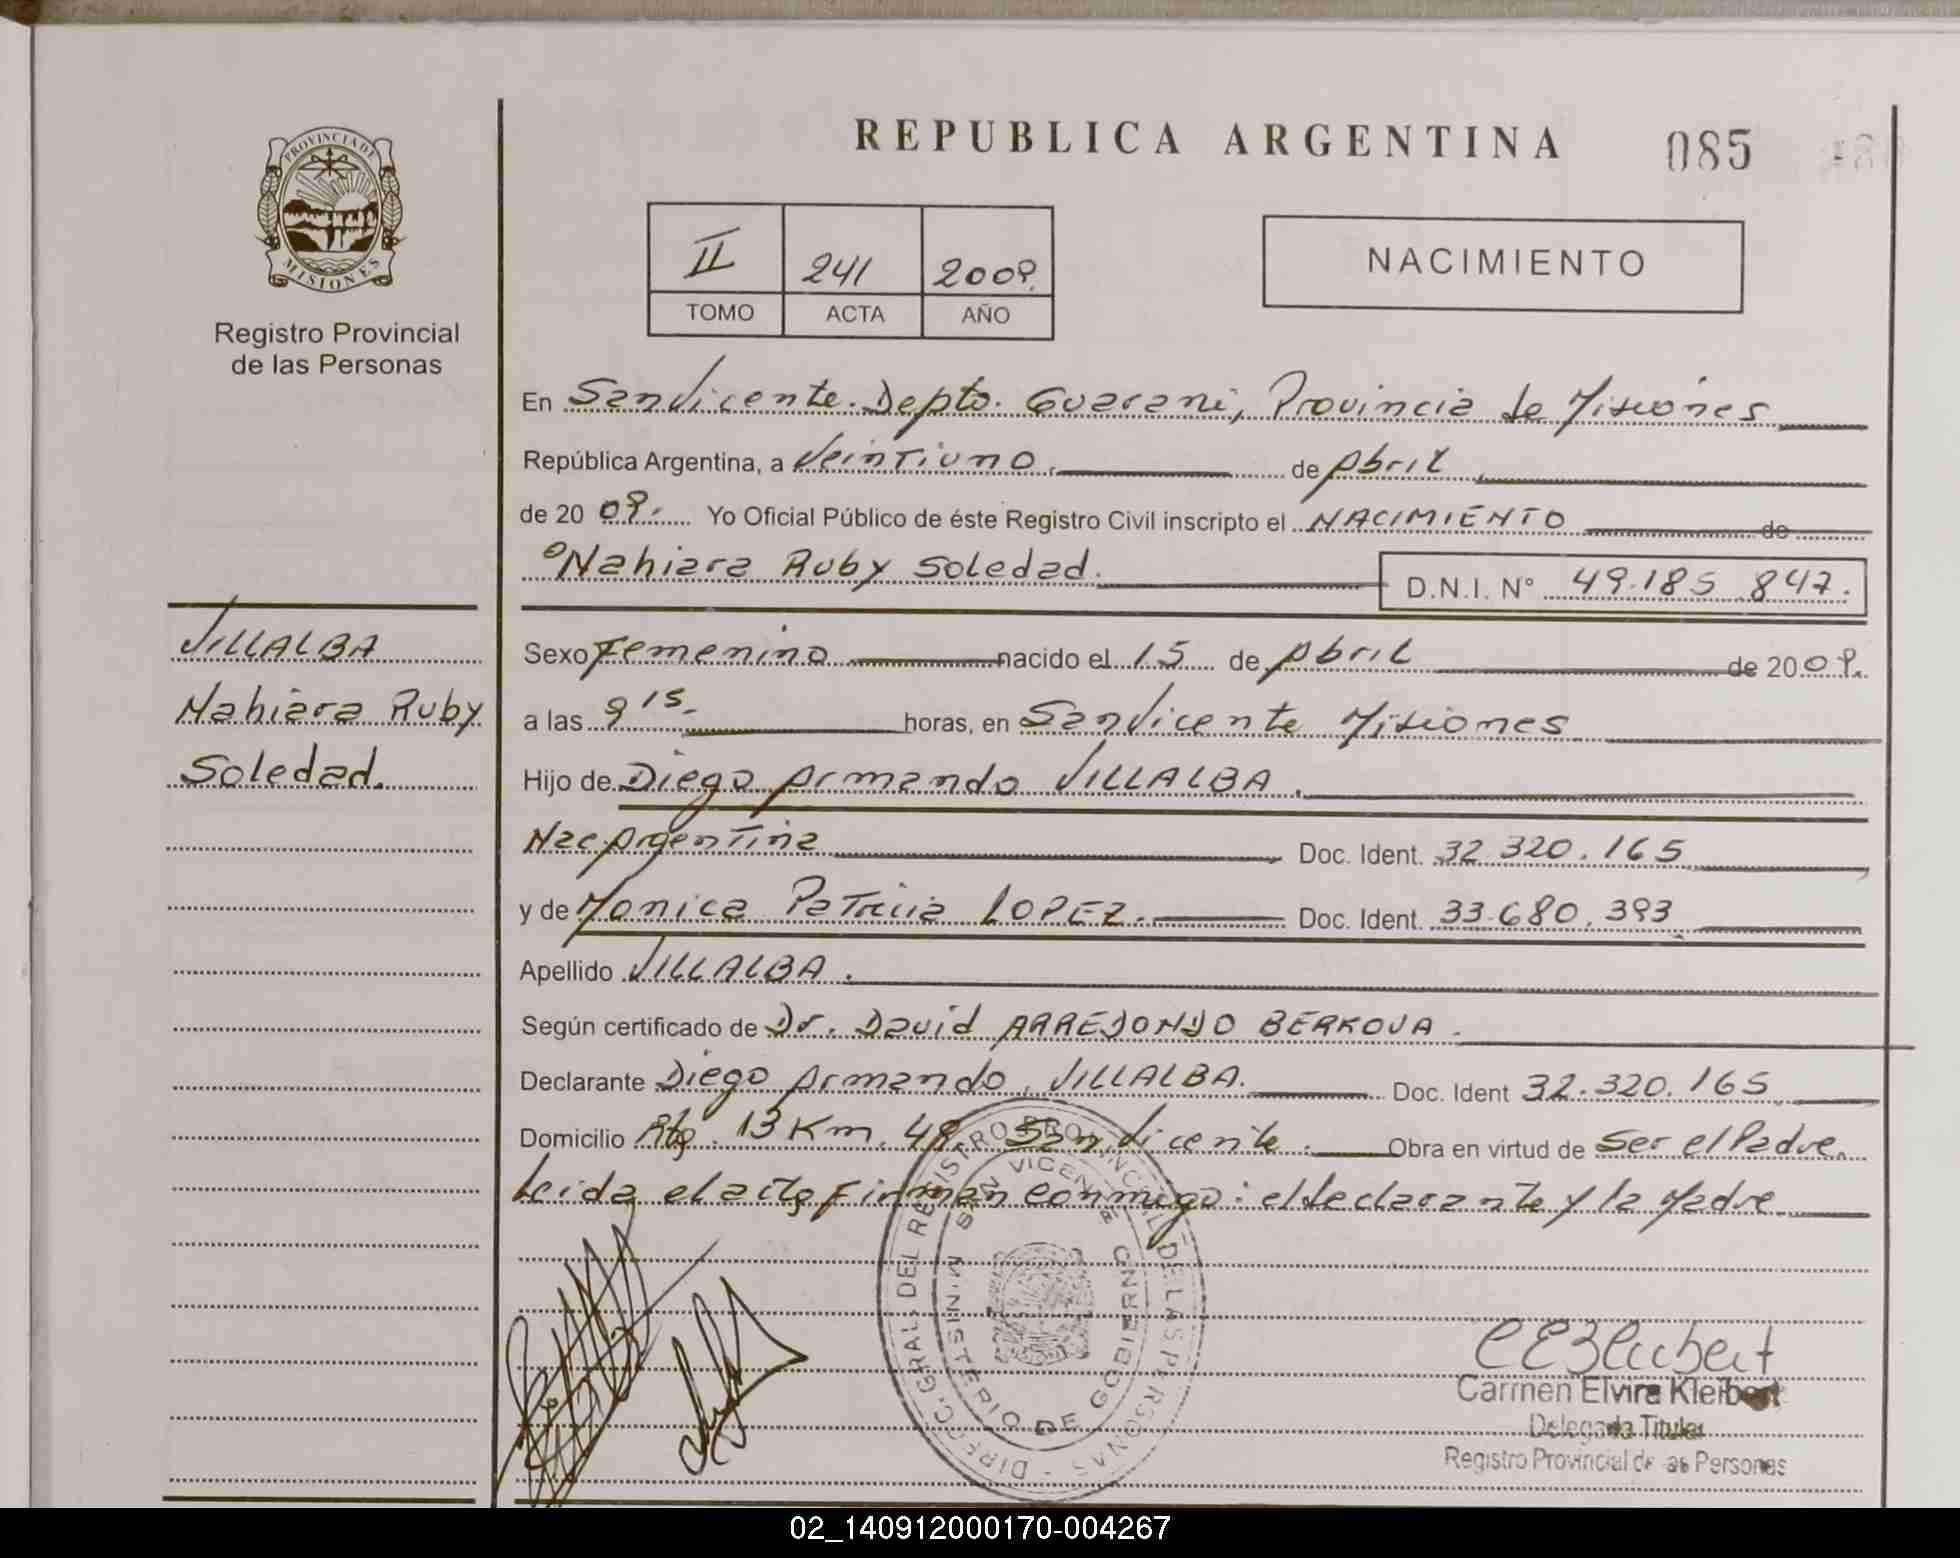 REPUBLICA ARGENTINA
085
PROVINCIA DE
MISIONES
Registro Provincial
de las Personas
II 241 2009.
TOMO ACTA AÑO
NACIMIENTO
En San Vicente. Depto. Guarani, Provincia de Misiones
República Argentina, a Veintiuno. de Abril
de 2009. Yo Oficial Público de éste Registro Civil inscripto el NACIMIENTO de
Nahiara Ruby Soledad.
D.N.I. N° 49.185.847.
VILLALBA
Nahiara Ruby
Soledad.
Sexo Femenino nacido el 15 de Abril de 2009.
a las 9 15 horas, en San Vicente Misiones
Hijo de Diego Armando VILLALBA.
Nac Argentina Doc. Ident. 32 320.165
y de Monica Patricia LOPEZ. Doc. Ident. 33.680.393
Apellido VILLALBA.
Según certificado de Dr. David ARREDONDO BERKOVA.
Declarante Diego Armando VILLALBA. Doc. Ident 32.320.165
Domicilio Rta. 13 Km. 48 San Vicente. Obra en virtud de Ser el Padre.
Leida el acta Firman conmigo: el declarante y la Madre.
DIREC. GRAL. DEL REGISTRO PROVINCIAL DE LAS PERSONAS
SAN VICENTE
MINISTERIO DE GOBIERNO
Carmen Elvira Kleibert
Delegada Titular
Registro Provincial de las Personas
02_140912000170-004267